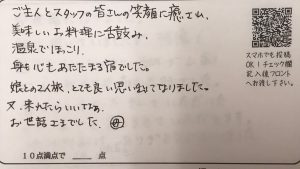 ご主人とスタッフの皆さんの笑顔に癒され、
美味しいお料理に舌鼓み、
温泉でほっこり、
身も心もあたたまる宿でした。
娘との2人旅、とても良い思い出になりました。
又、来れたらいいなぁ。
お世話さまでした。
10点満点で 点
スマホでも投稿
OK!チェック欄
記入後フロント
へお渡し下さい。